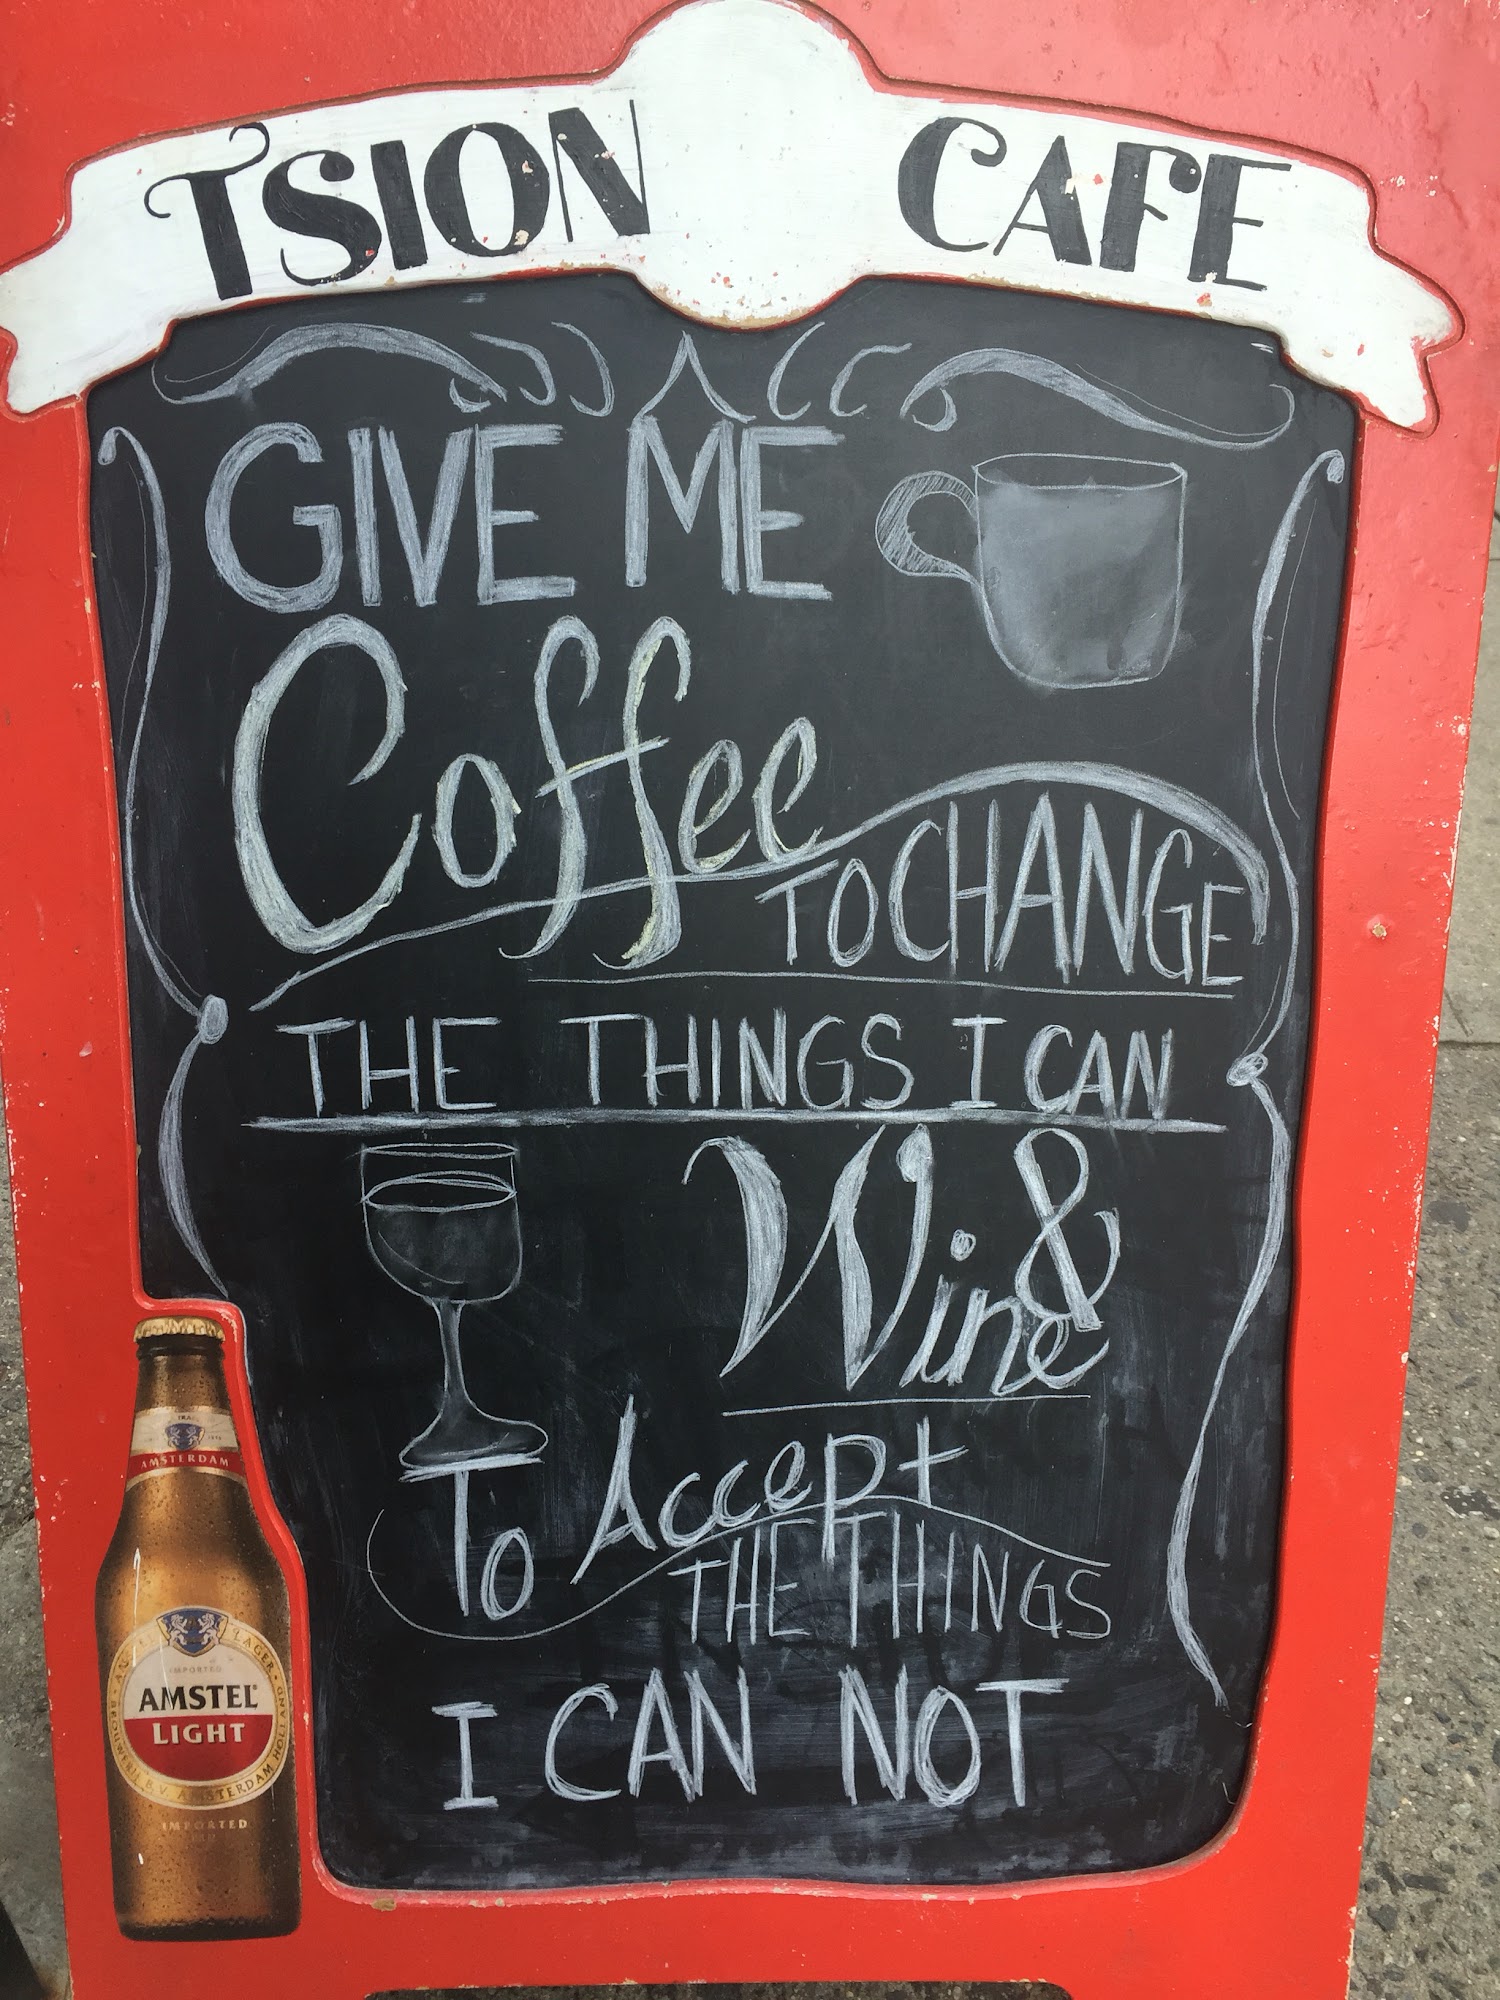 TSION CAFE
GIVE ME
Coffee
TO CHANGE
THE THINGS I CAN
& Wine
To Accept
THE THINGS
I CAN NOT
AMSTERDAM
LAGER
IMPORTED
AMSTEL
LIGHT
BROUWERIJ B.V. AMSTERDAM HOLLAND
IMPORTED